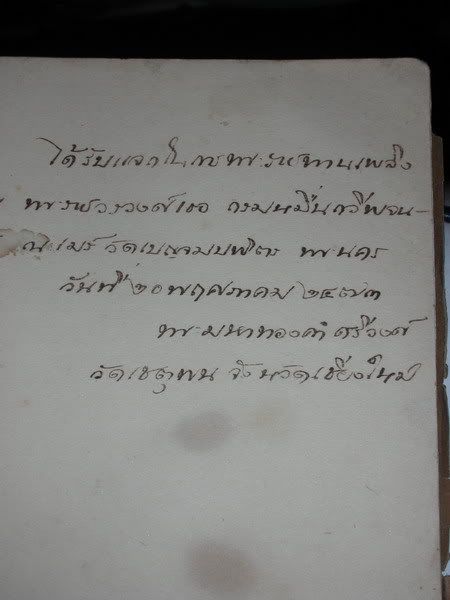 ได้รับแจกในการพระราชทานเพลิง
พระราชวรวงศ์เธอ กรมหมื่นกวีพจน-
เมรุวัดเบญจมบพิตร พระนคร
วันที่ ๒๐ พฤศภาคม ๒๔๗๓
พระมหาทองคำ ศรีวงศ์
วัดเชตุพน จังหวัดเชียงใหม่